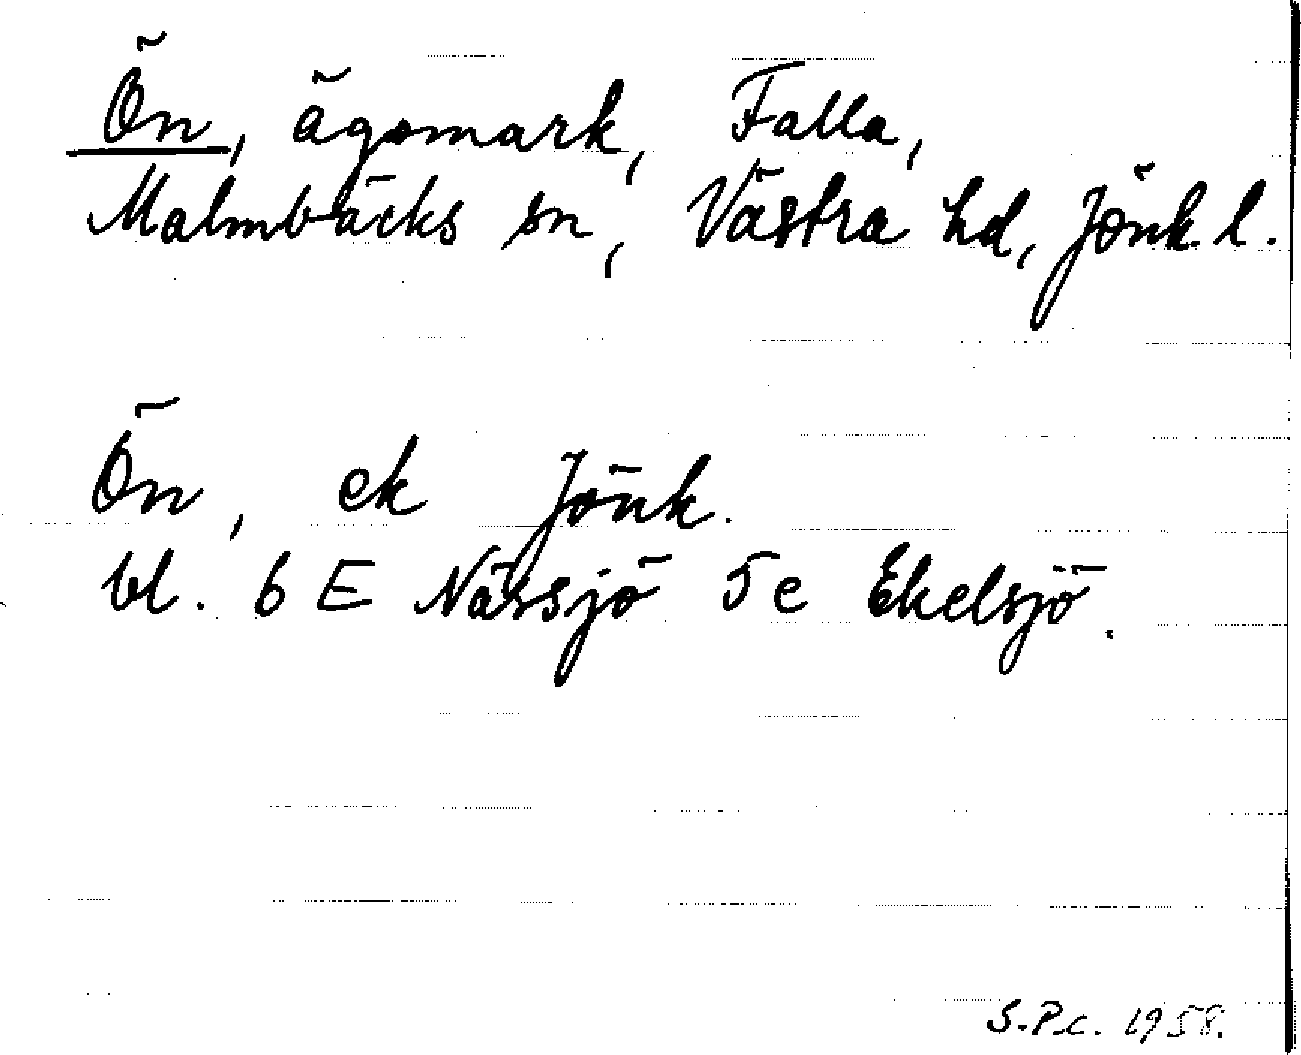 Ön, ägomark, Falla,
Malmbäcks sn, Västra hd, Jönk. l.
Ön, ek Jönk.
bl. 6 E Nässjö 5e Ekelsjö.
S.P.c. 1958.